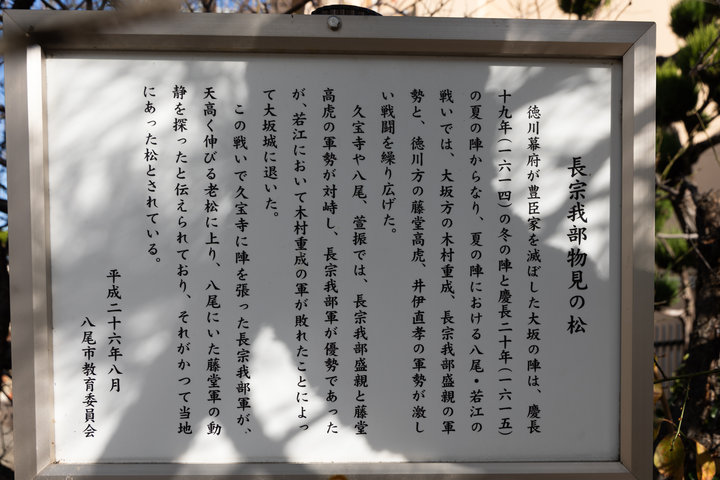 長宗我部物見の松
徳川幕府が豊臣家を滅ぼした大坂の陣は、慶長
十九年(一六一四)の冬の陣と慶長二十年(一六一五)
の夏の陣からなり、夏の陣における八尾・若江の
戦いでは、大坂方の木村重成、長宗我部盛親の軍
勢と、徳川方の藤堂高虎、井伊直孝の軍勢が激し
い戦闘を繰り広げた。
久宝寺や八尾、萱振では、長宗我部盛親と藤堂
高虎の軍勢が対峙し、長宗我部軍が優勢であった
が、若江において木村重成の軍が敗れたことによっ
て大坂城に退いた。
この戦いで久宝寺に陣を張った長宗我部軍が、
天高く伸びる老松に上り、八尾にいた藤堂軍の動
静を探ったと伝えられており、それがかつて当地
にあった松とされている。
平成二十六年八月
八尾市教育委員会